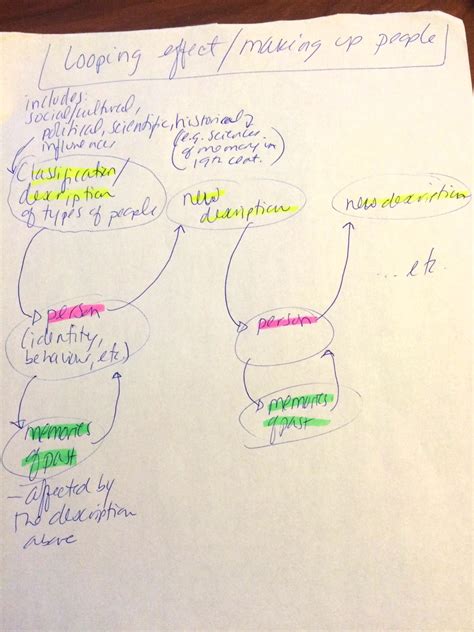 Looping effect/making up people
includes:
social/cultural,
political, scientific, historical,
influences
(e.g. sciences
of memory in
19th cent.)
Classification/
description
of types of people
new
description
new description
... etc.
person
(identity,
behaviour, etc)
person
memories
of past
memories
of past
– affected by
the description
above